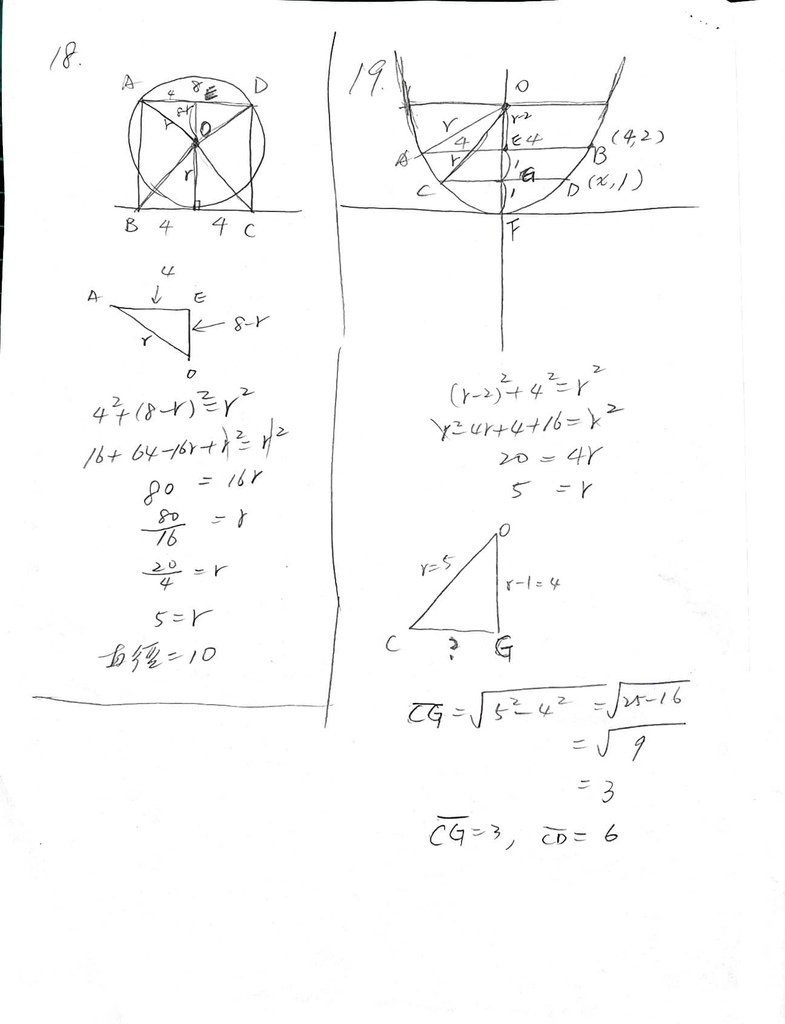 18.
A 8 D
4 E
8-r
r O
r
B 4 4 C
4
A E
8-r
r
O
4²+(8-r)²=r²
16+64-16r+r²=r²
80 = 16r
80/16 = r
20/4 = r
5=r
直徑=10
19.
O
r r-2
A 4 E 4 B (4,2)
r 1
C G D (x,1)
1
F
(r-2)²+4²=r²
r²-4r+4+16=r²
20 = 4r
5 = r
O
r=5 r-1=4
C ? G
CG = √5²-4² = √25-16
= √9
= 3
CG=3, CD= 6